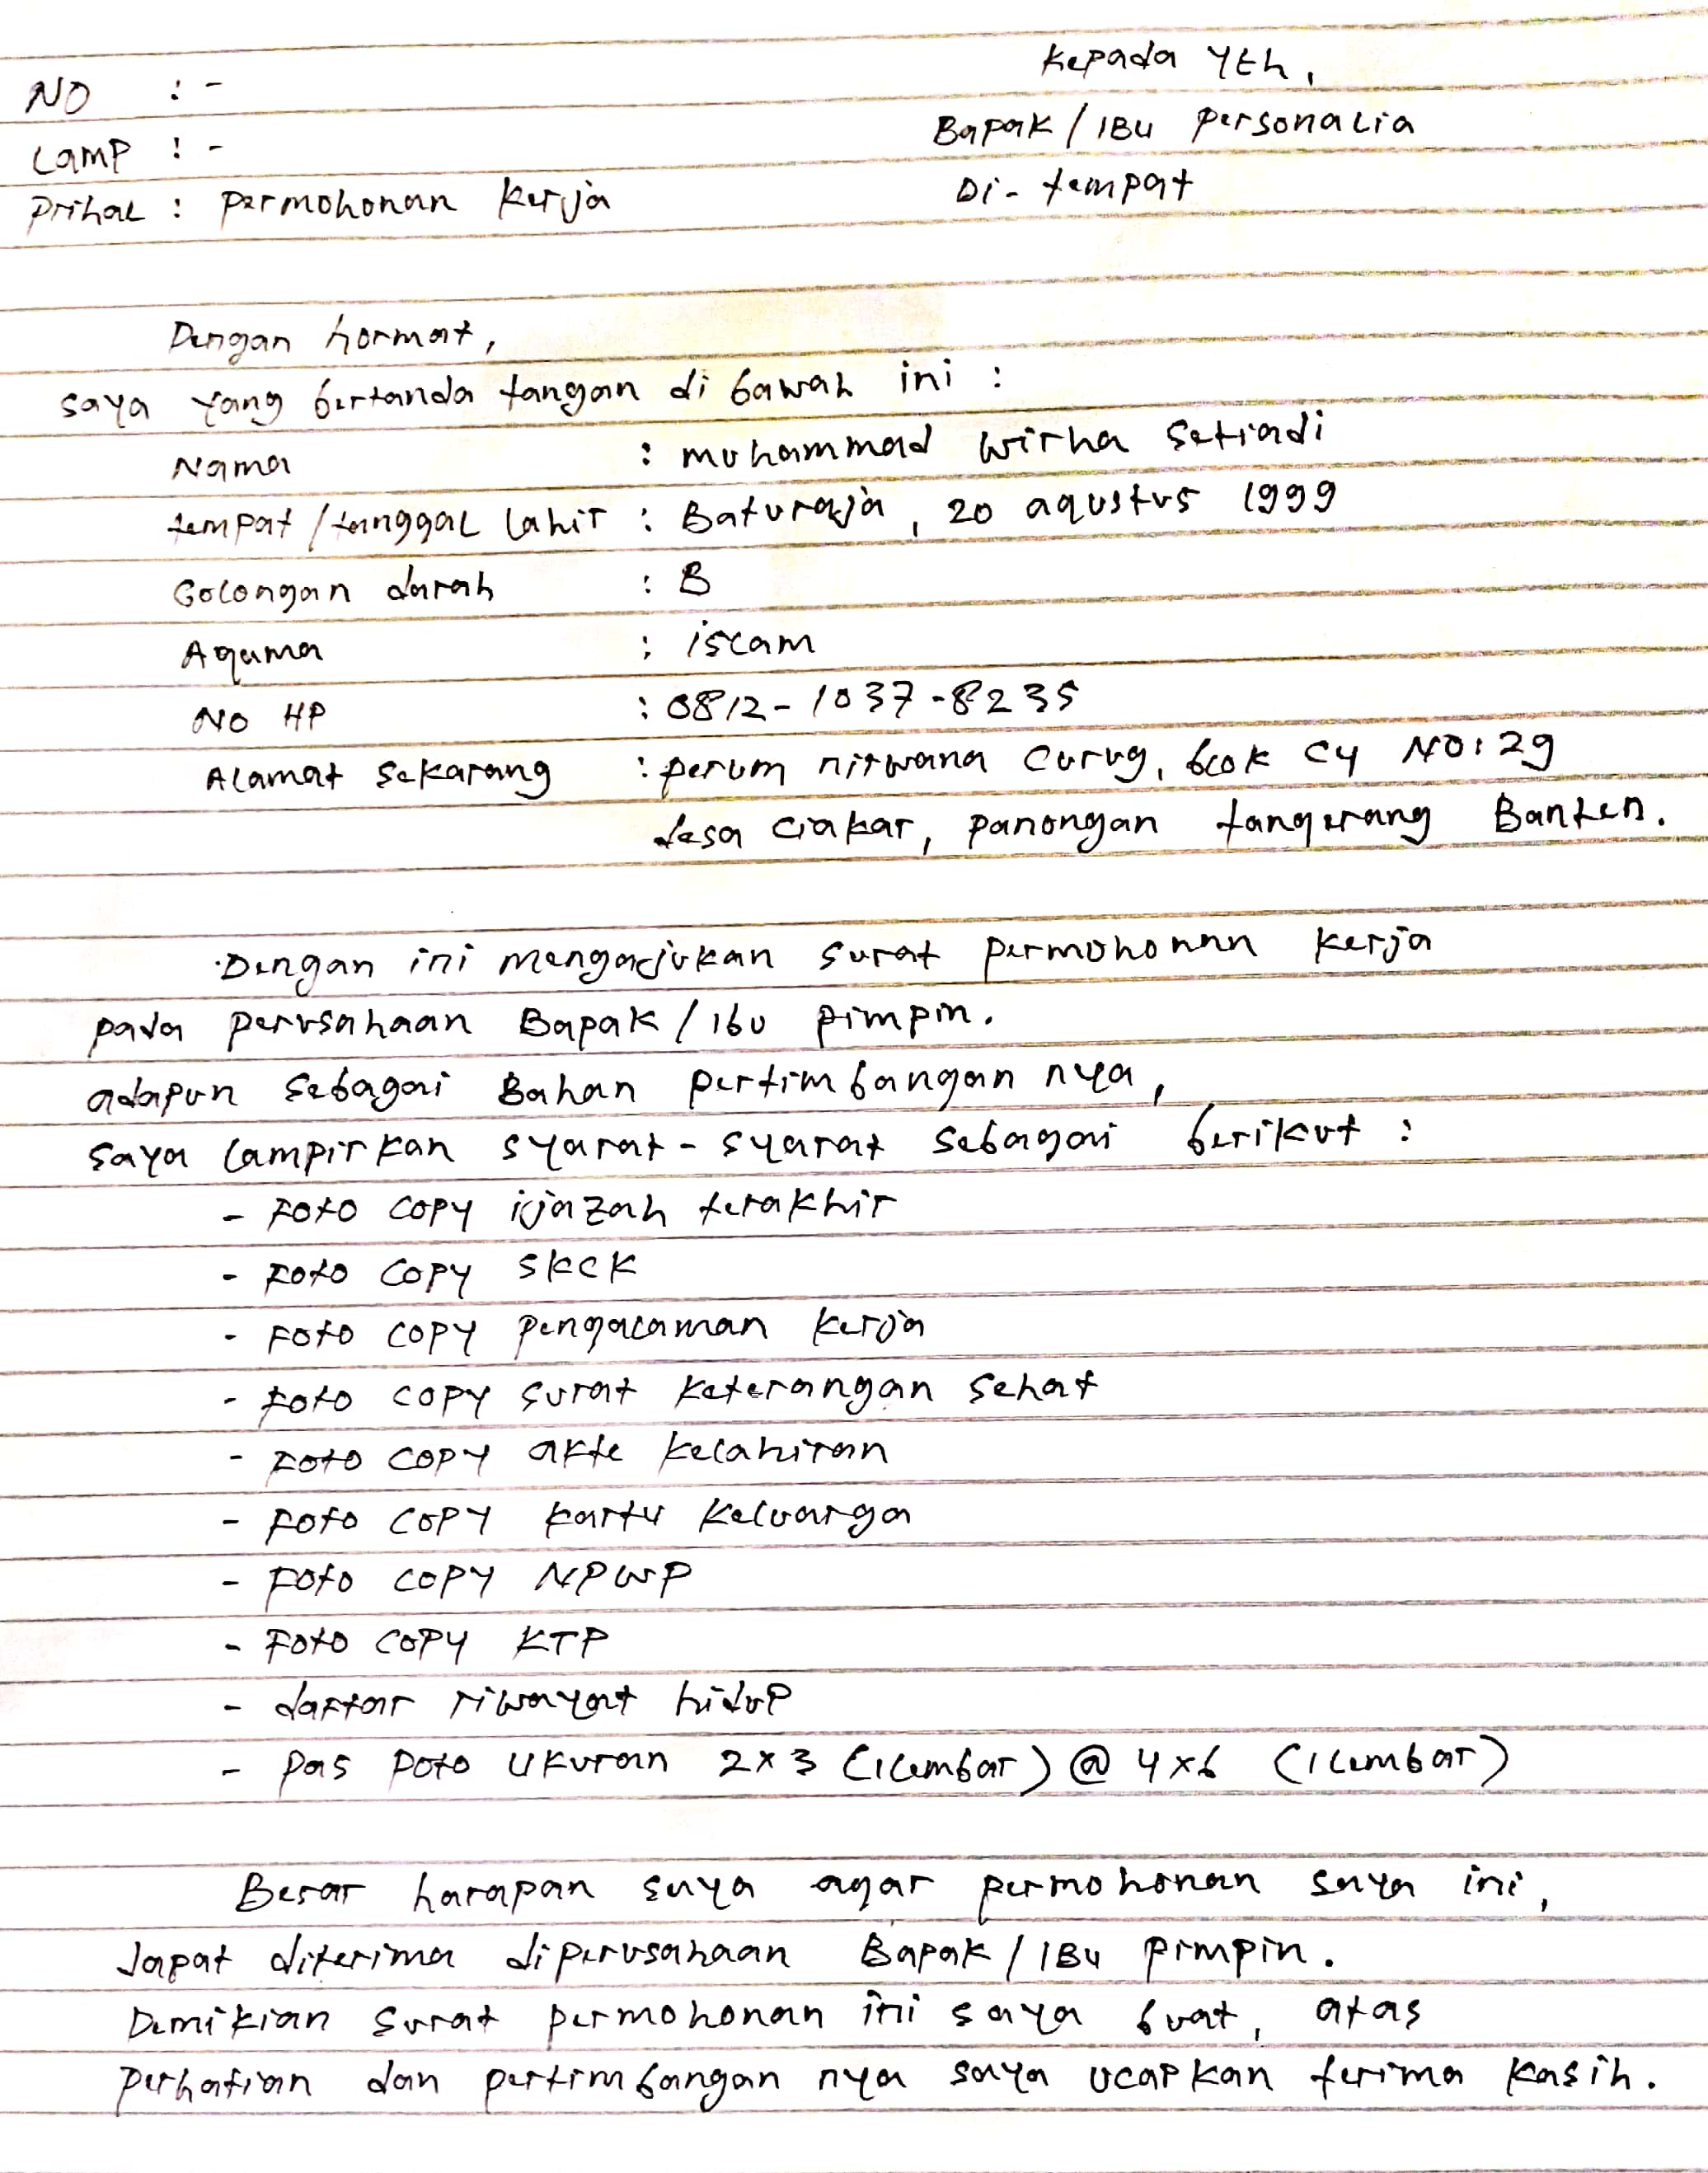 Kepada Yth,
NO : -
Bapak / IBu personalia
Lamp : -
Di- tempat
Prihal : permohonan kerja
Dengan hormat,
saya yang bertanda tangan di bawah ini :
Nama : muhammad wirha setiadi
tempat / tanggal lahir : Baturaja, 20 agustus 1999
Golongan darah : B
Agama : islam
NO HP : 0812-1037-8235
Alamat sekarang : perum nirwana curug, blok C4 NO: 29
desa ciakar, panongan tangerang Banten.
Dengan ini mengajukan surat permohonan kerja
pada perusahaan Bapak / ibu pimpin.
adapun sebagai Bahan pertimbangan nya,
saya lampirkan syarat - syarat sebagai berikut :
- Foto copy ijazah terakhir
- Foto copy skck
- Foto copy pengalaman kerja
- Foto copy surat keterangan sehat
- Foto copy akte kelahiran
- Foto copy kartu keluarga
- Foto copy NPWP
- Foto copy KTP
- daftar riwayat hidup
- Pas Poto ukuran 2x3 (1 lembar) @ 4x6 (1 lembar)
Besar harapan saya agar permohonan saya ini,
dapat diterima diperusahaan Bapak / IBu pimpin.
Demikian surat permohonan ini saya buat, atas
perhatian dan pertimbangan nya saya ucapkan terima kasih.